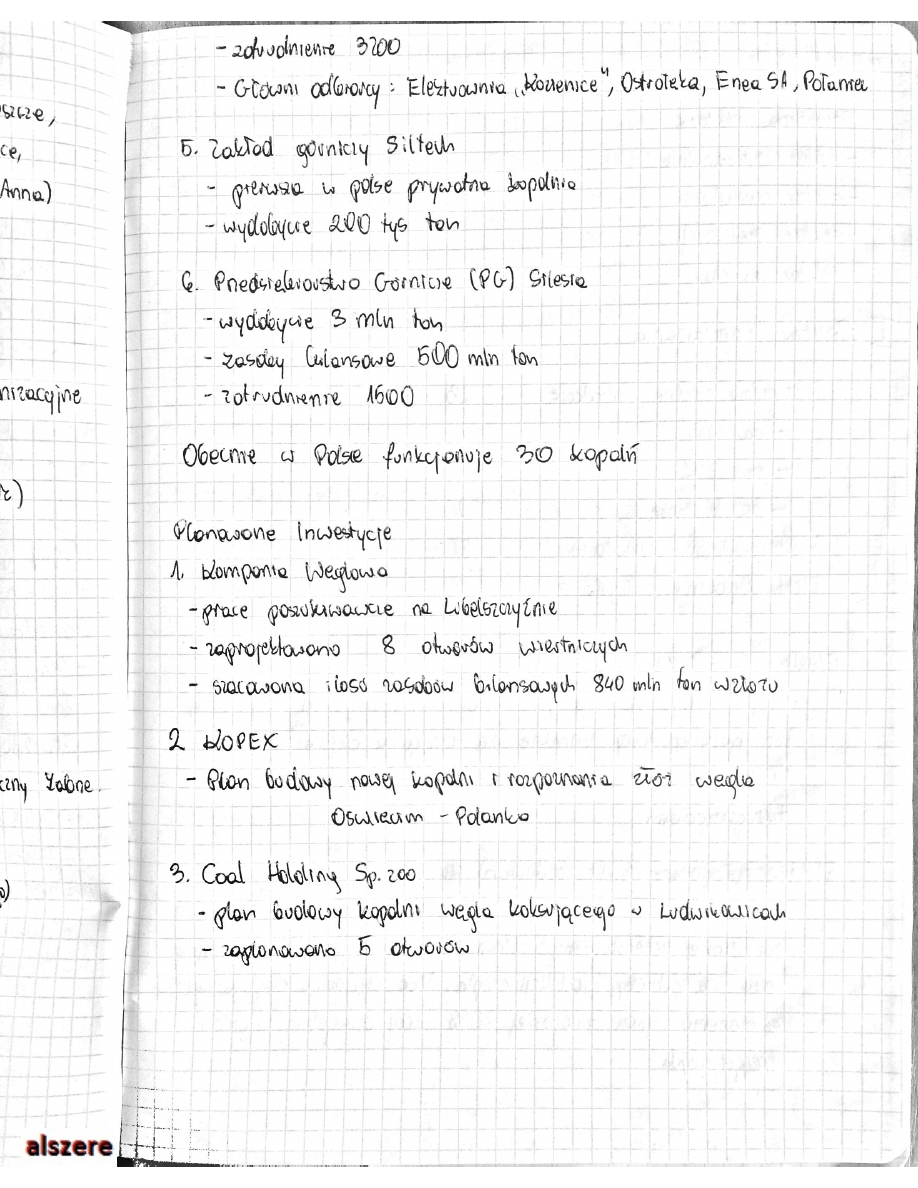 - zatrudnienie 3200
- Główni odbiorcy : Elektrownia „Kozienice", Ostrołęka, Enea SA, Połaniec
5. Zakład górniczy Siltech
- pierwsza w polsce prywatna kopalnia
- wydobycie 200 tys ton
6. Przedsiębiorstwo Górnicze (PG) Silesia
- wydobycie 3 mln ton
- zasoby bilansowe 500 mln ton
- zatrudnienie 1500
Obecnie w Polsce funkcjonuje 30 kopalń
Planowane Inwestycje
1. Kompania Węglowa
- prace poszukiwawcze na Lubelszczyźnie
- zaprojektowano 8 otworów wiertniczych
- szacowana ilość zasobów bilansowych 840 mln ton wzłożu
2 KOPEX
- Plan budowy nowej kopalni i rozpoznania złóż węgla
Oświęcim - Polanka
3. Coal Holding Sp. zoo
- plan budowy kopalni węgla koksującego w Ludwikowicach
- zaplanowano 5 otworów
szcze,
ce,
Anna)
nizacyjne
czny Żabne.
alszere